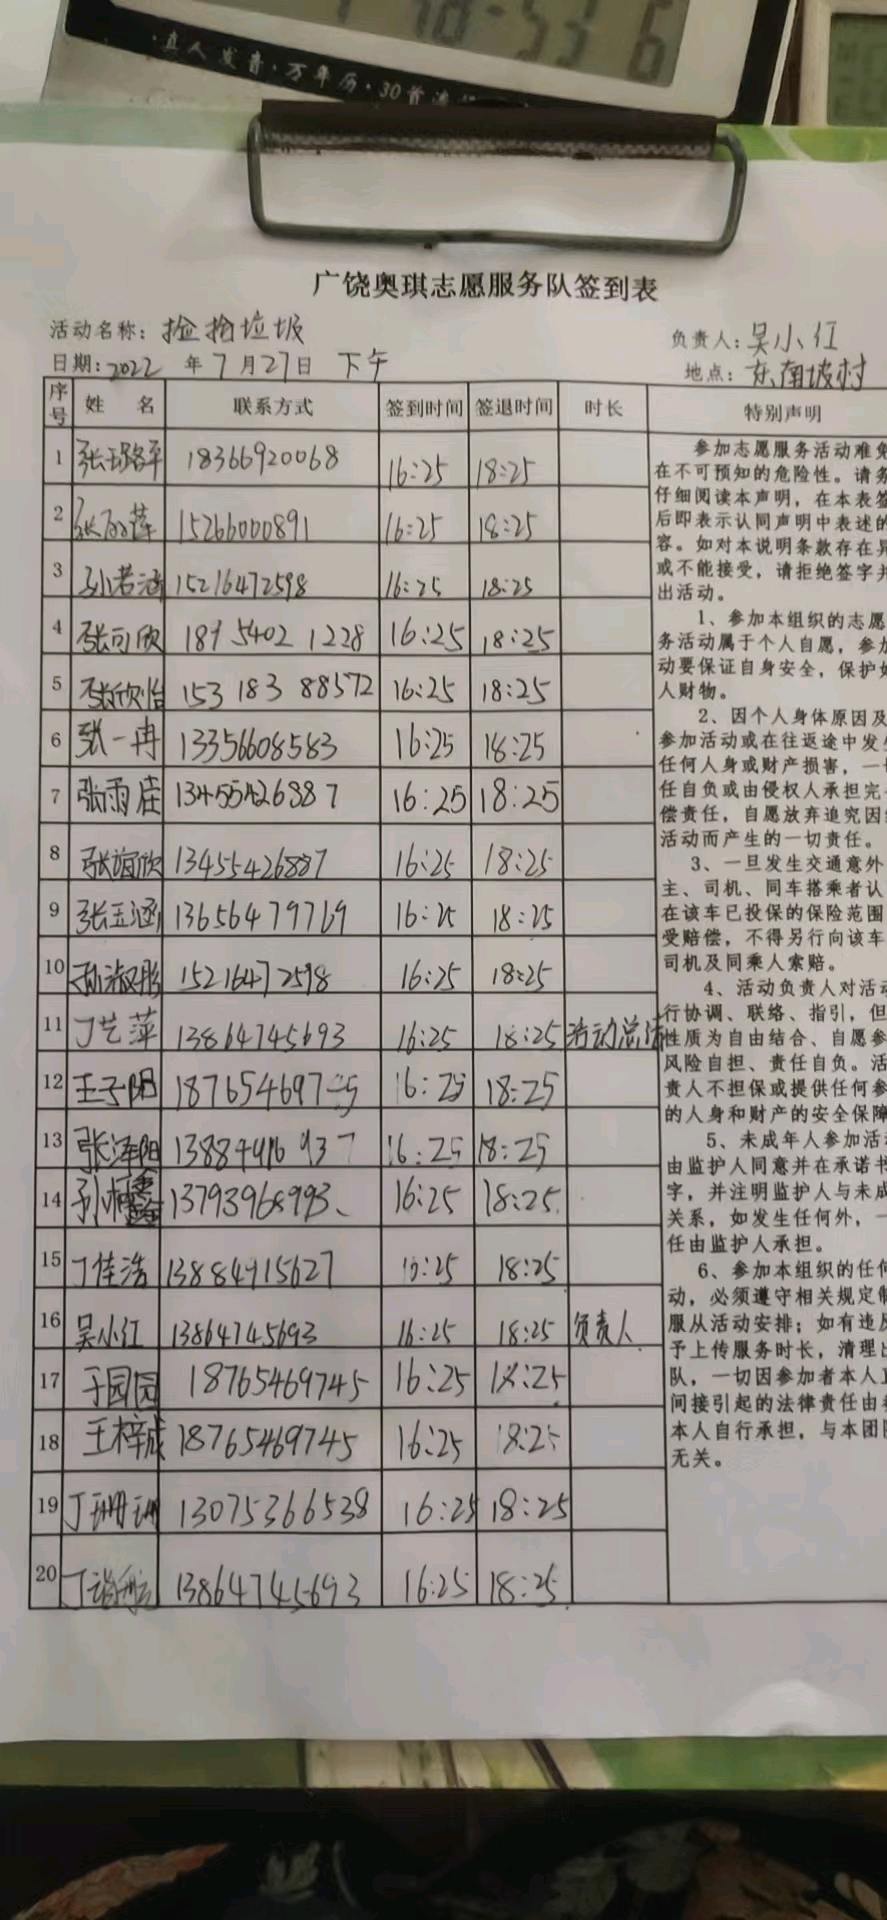 ·真人发音·万年历·30首
广饶奥琪志愿服务队签到表
活动名称: 捡拾垃圾
负责人: 吴小红
日期: 2022 年 7 月 27 日 下午
地点: 东南坡村
序号 姓 名 联系方式 签到时间 签退时间 时长 特别声明
1 18366920068 16:25 18:25
2 15266000891 16:25 18:25
3 孙若涵 15216472598 16:25 18:25
4 张可欣 189 5402 1228 16:25 18:25
5 张欣怡 153 183 88572 16:25 18:25
6 张一冉 13356608583 16:25 18:25
7 张雨佳 13455426887 16:25 18:25
8 13455426887 16:25 18:25
9 张玉涵 13656479769 16:25 18:25
10 孙淑彤 15216472598 16:25 18:25
11 丁艺萍 13864745693 16:25 18:25 活动总结
12 王子阳 18765469745 16:25 18:25
13 张泽阳 16:25 18:25
14 13793968993、 16:25 18:25
15 丁佳浩 13884915627 16:25 18:25
16 吴小红 13864745693 16:25 18:25 负责人
17 于园园 18765469745 16:25 18:25
18 王梓成 18765469745 16:25 18:25
19 丁珊珊 13075366538 16:25 18:25
20 13864745693 16:25 18:25
参加志愿服务活动难免
在不可预知的危险性。请务
仔细阅读本声明，在本表签
后即表示认同声明中表述的
容。如对本说明条款存在异
或不能接受，请拒绝签字并
出活动。
1、参加本组织的志愿
务活动属于个人自愿，参加
动要保证自身安全，保护好
人财物。
2、因个人身体原因及
参加活动或在往返途中发生
任何人身或财产损害，一切
任自负或由侵权人承担完全
偿责任，自愿放弃追究因组
活动而产生的一切责任。
3、一旦发生交通意外
主、司机、同车搭乘者认
在该车已投保的保险范围
受赔偿，不得另行向该车
司机及同乘人索赔。
4、活动负责人对活动
行协调、联络、指引，但
性质为自由结合、自愿参
风险自担、责任自负。活
责人不担保或提供任何参
的人身和财产的安全保障
5、未成年人参加活动
由监护人同意并在承诺书
字，并注明监护人与未成
关系，如发生任何外，一
任由监护人承担。
6、参加本组织的任何
动，必须遵守相关规定制
服从活动安排；如有违反
予上传服务时长，清理出
队，一切因参加者本人直
间接引起的法律责任由参
本人自行承担，与本团队
无关。